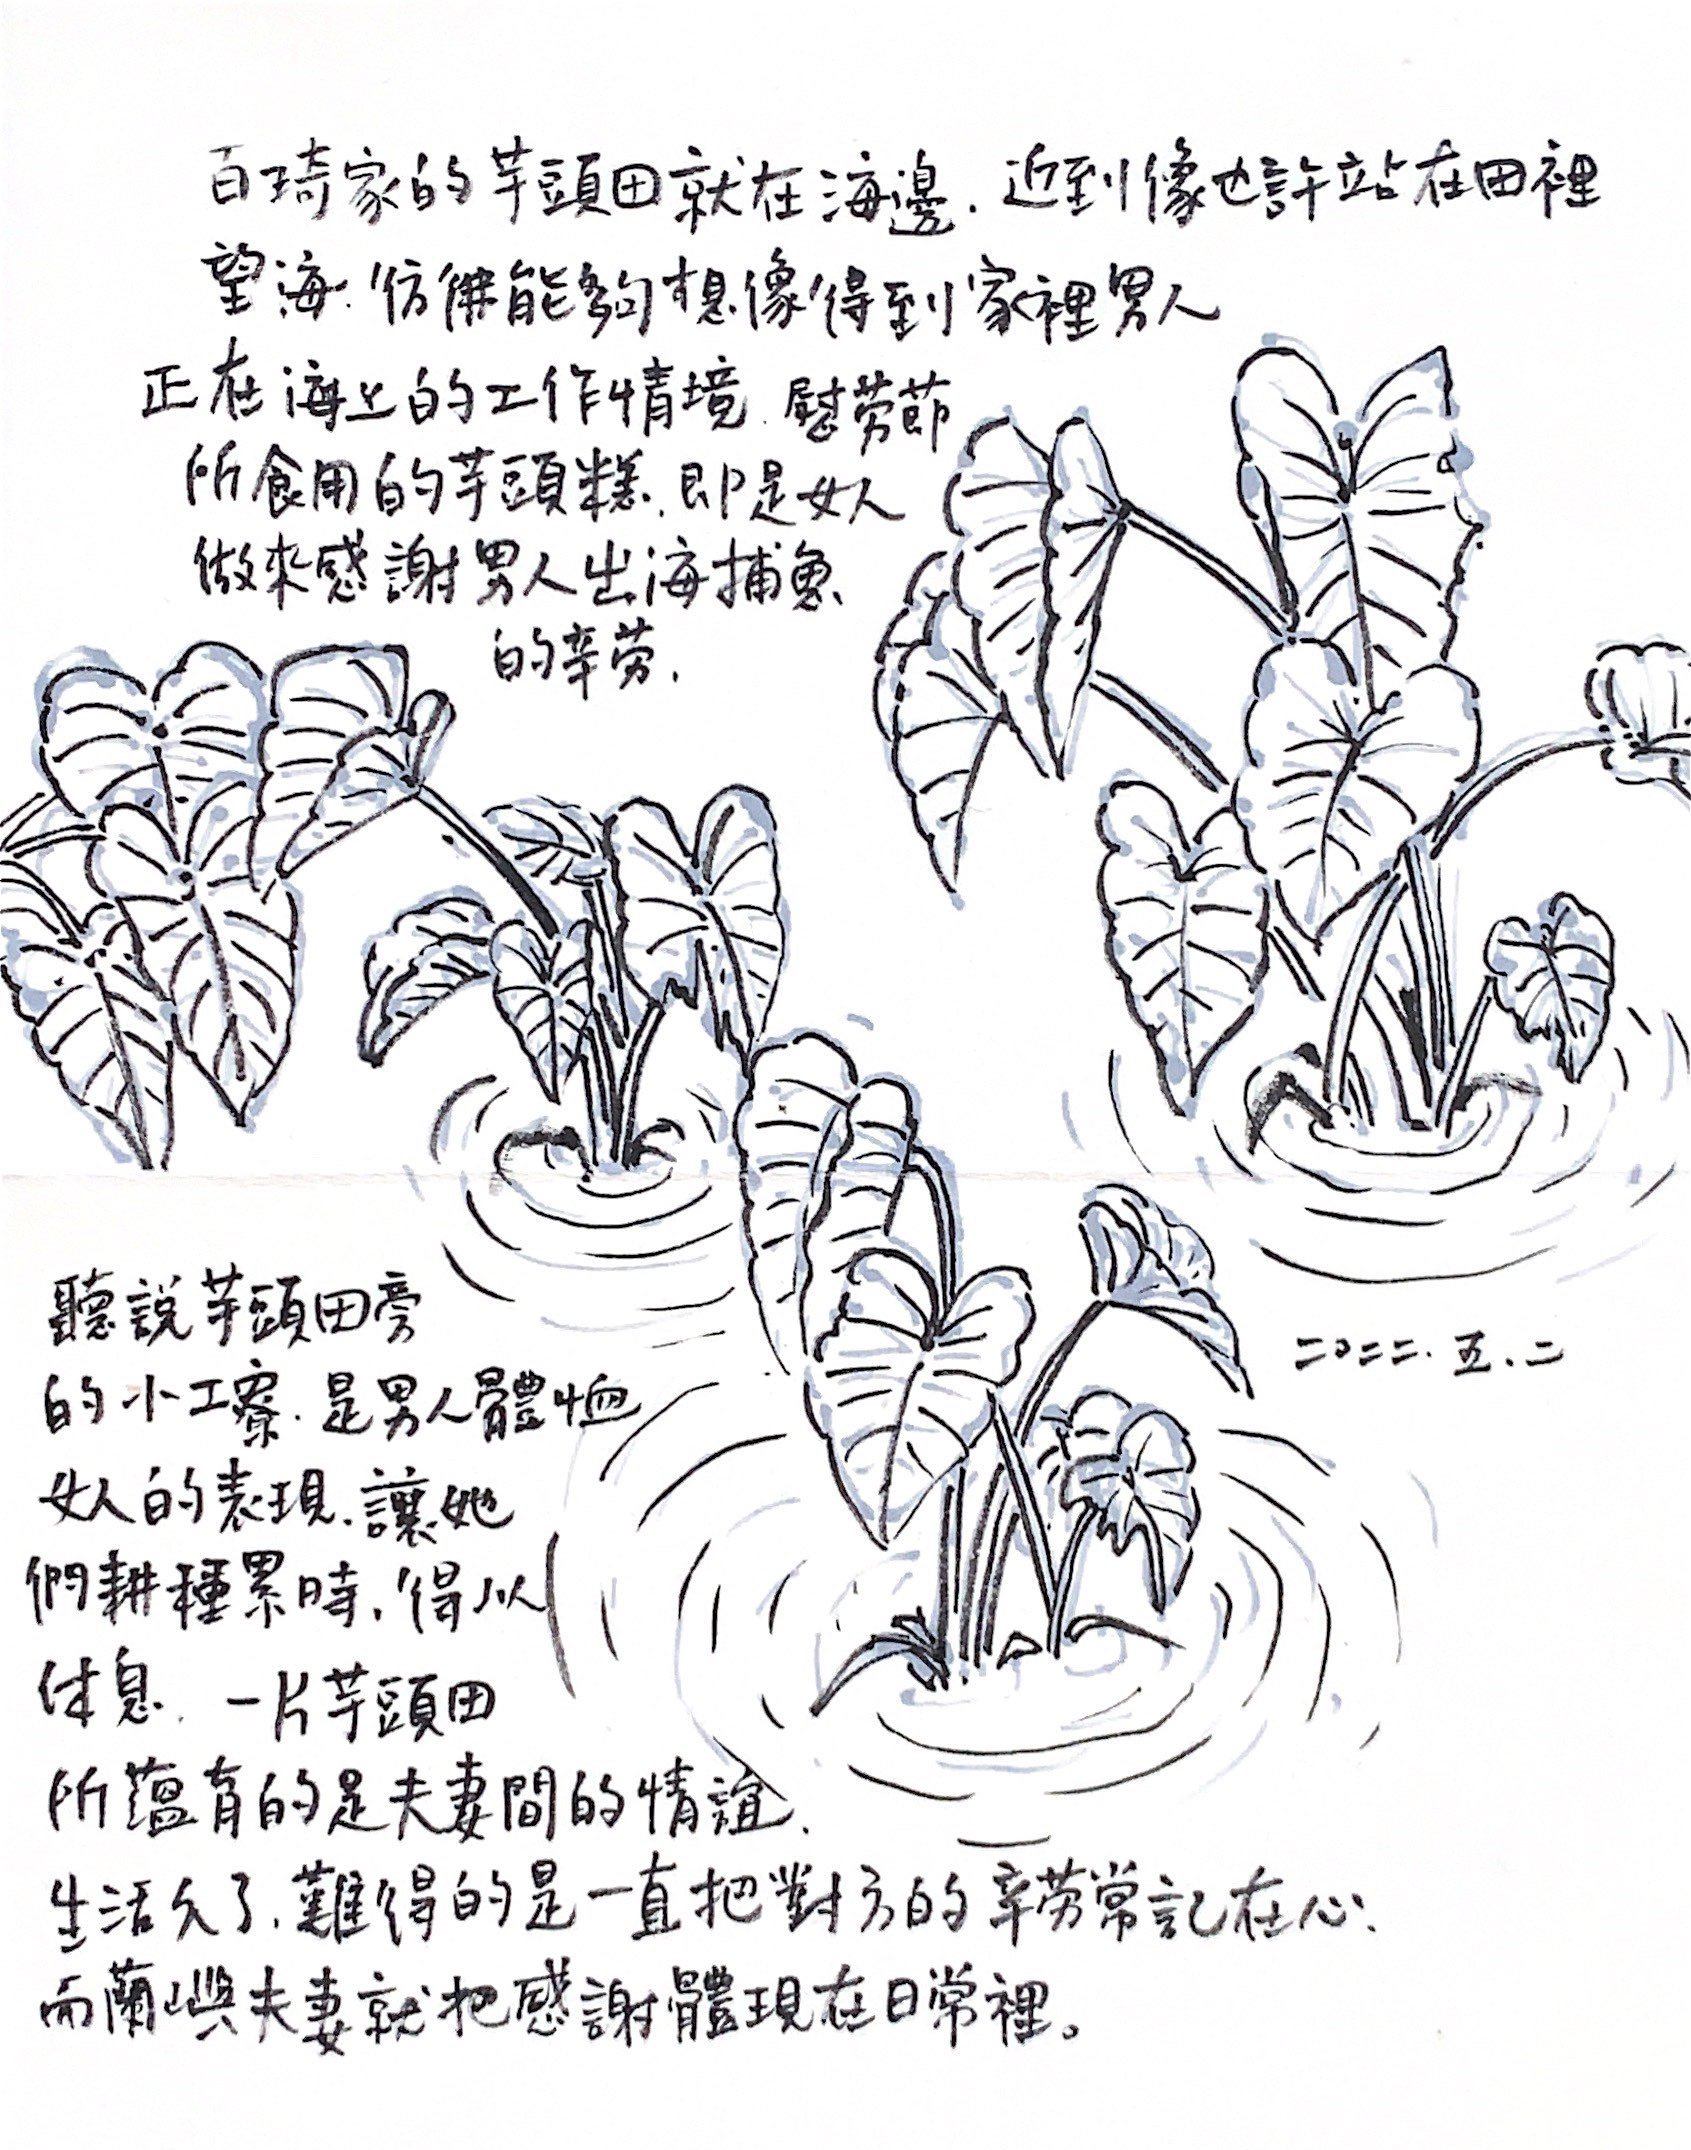 百琦家的芋頭田就在海邊．近到像也許站在田裡
望海．彷彿能夠想像得到家裡男人
正在海上的工作情境．慰劳節
所食用的芋頭糕．即是女人
做來感謝男人出海捕魚
的辛劳．
聽說芋頭田旁
的小工寮．是男人體恤
女人的表現．讓她
們耕種累時．得以
休息．一片芋頭田
所蘊有的是夫妻間的情誼．
生活久了．難得的是一直把對方的辛劳常記在心．
而蘭嶼夫妻就把感謝體現在日常裡。
二〇二二．五．二